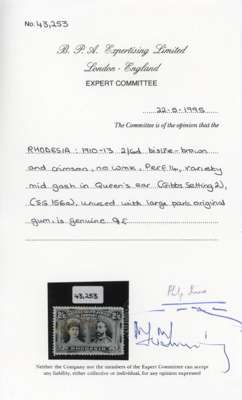 No. 43,253
B. P. A. Expertising Limited
London - England
EXPERT COMMITTEE
22-5-1995
The Committee is of the opinion that the
RHODESIA : 1910-13 2/6d bistre-brown
and crimson, no wmk, Perf 14, variety
mid gash in Queen's ear (Gibbs Setting 2),
(SG 156a), unused with large part original
gum, is genuine
43,253
RHODESIA
Neither the Company nor the members of the Expert Committee can accept
any liability, either collective or individual, for any opinion expressed